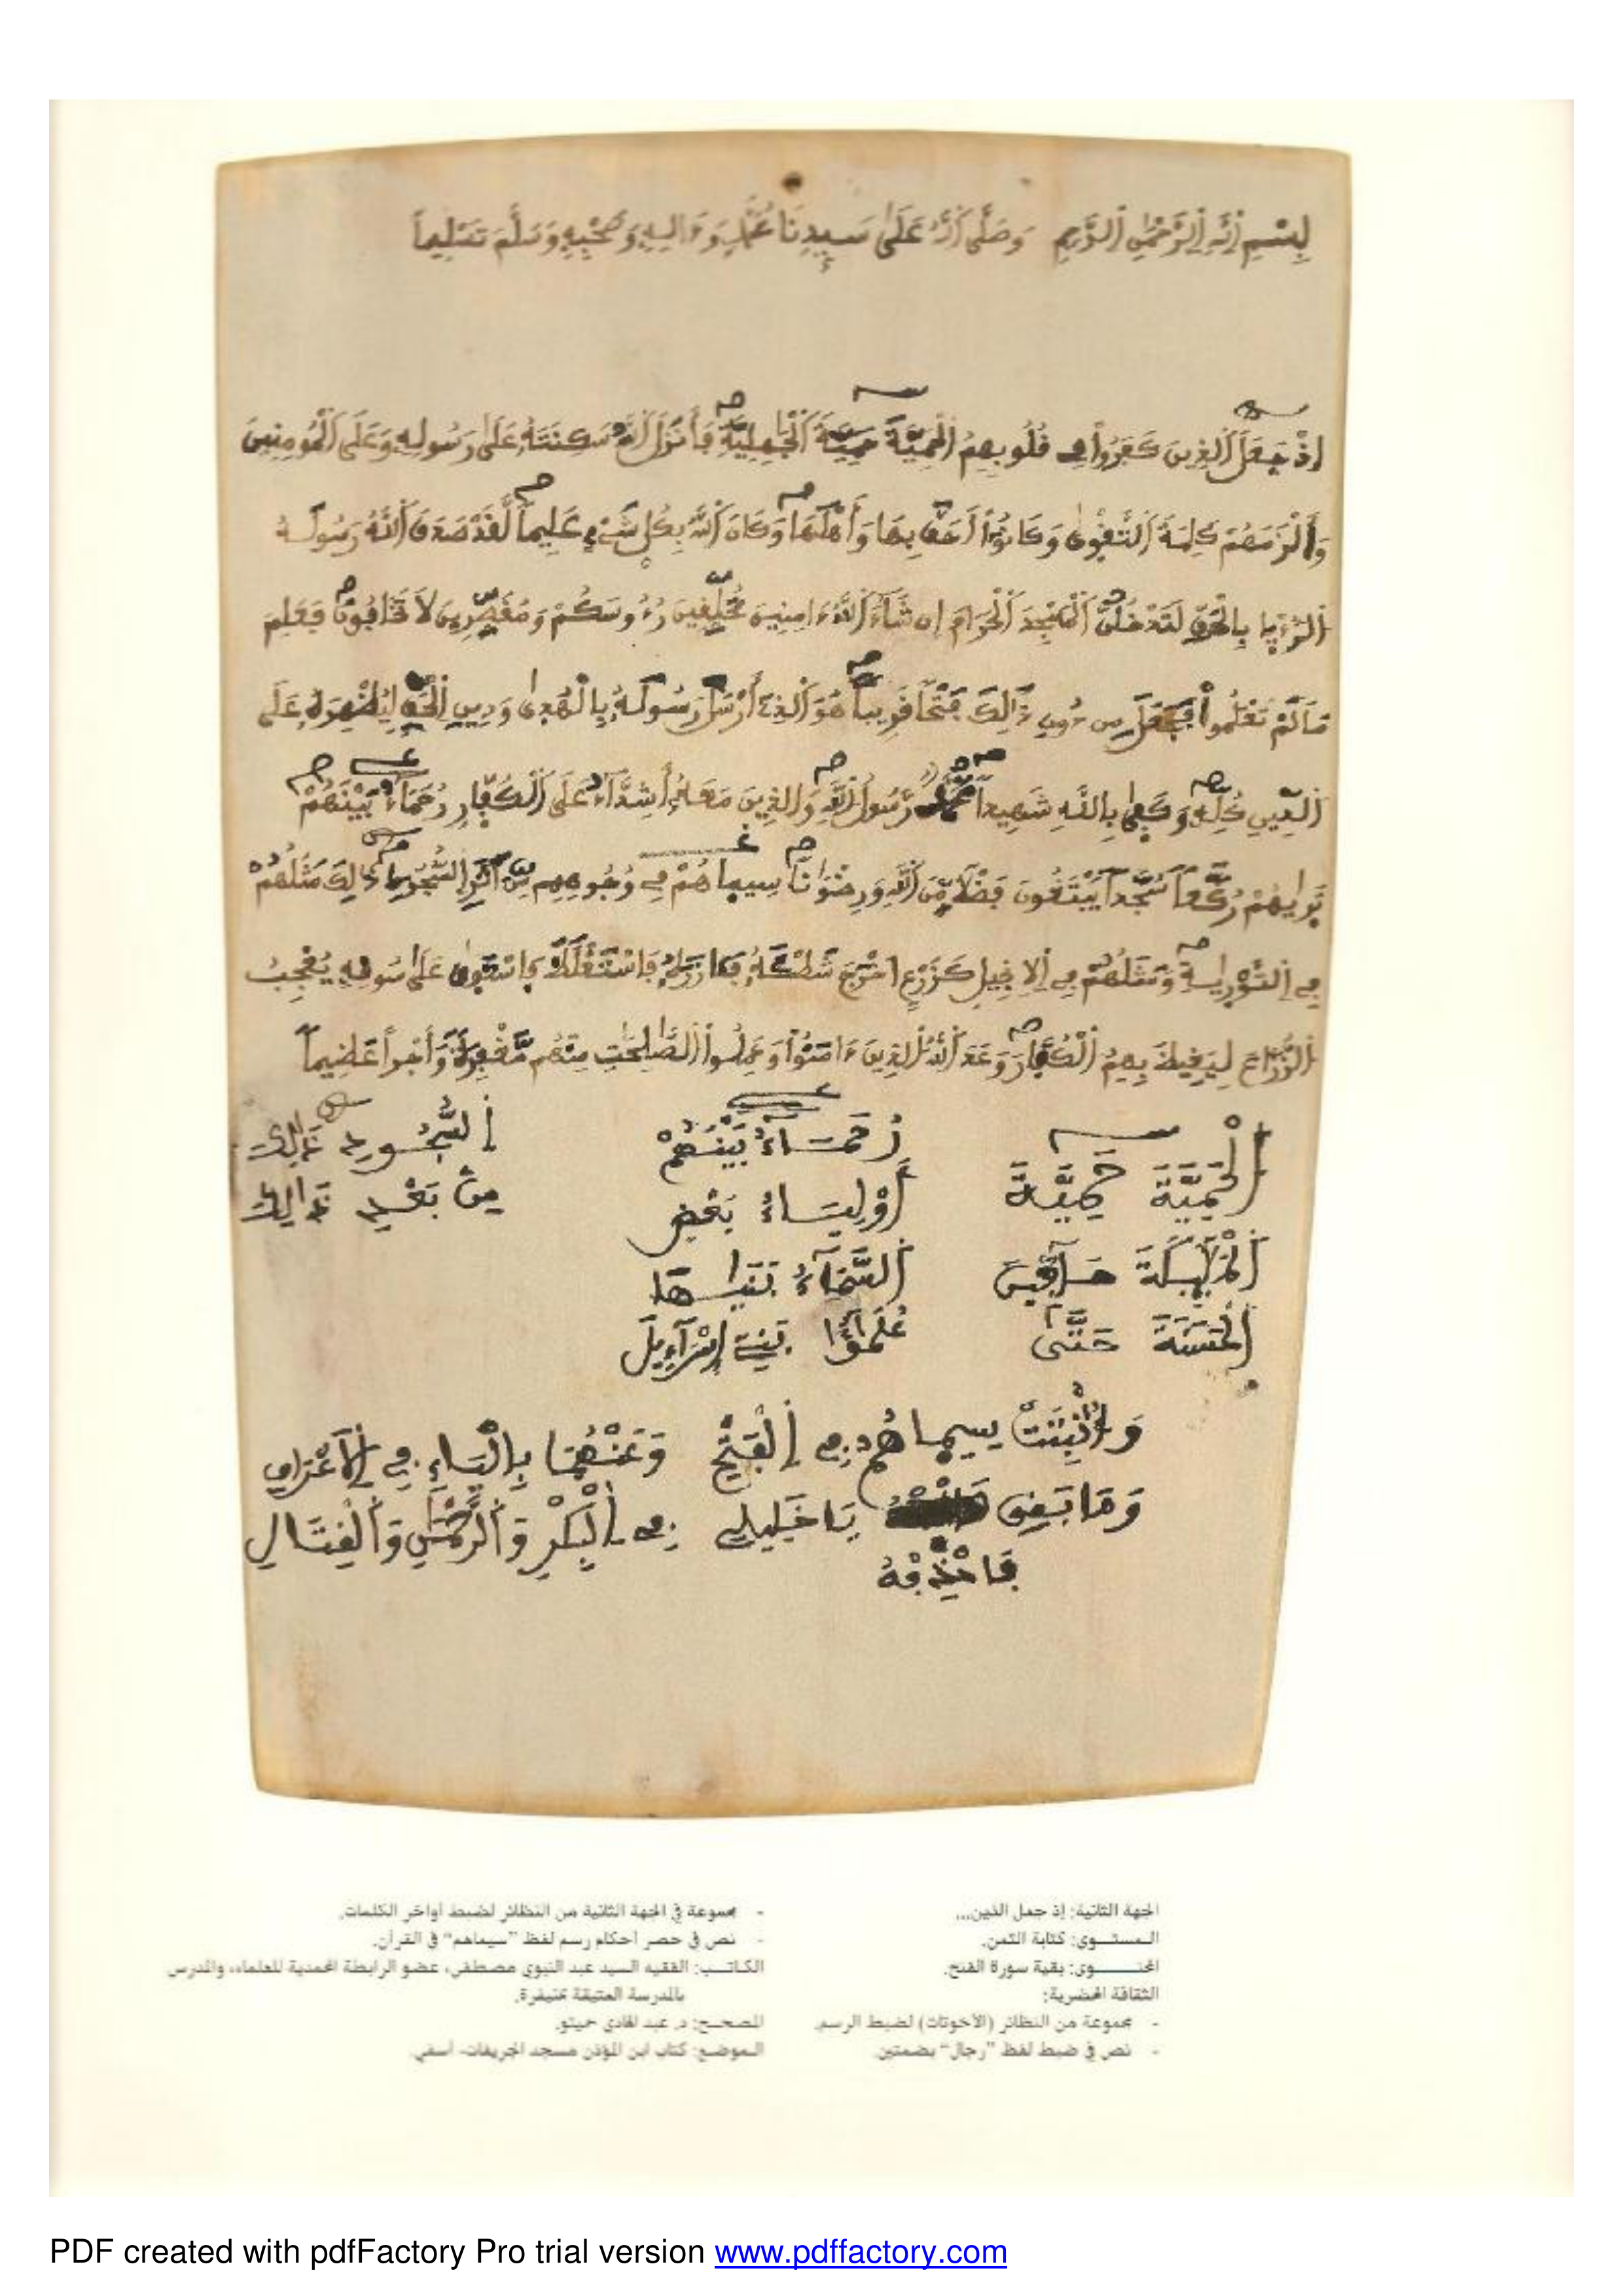 بِسْمِ اِللَّهِ اِلرَّحْمَٰنِ اِلرَّحِيمِ وَصَلَّى اَللَّهُ عَلَىٰ سَيِّدِنَا مُحَمَّدٍ وَءَالِهِ وَصَحْبِهِ وَسَلَّمَ تَسْلِيماً
اِذْ جَعَلَ اَلذِينَ كَفَرُواْ فِے قُلُوبِهِمُ اُلْحَمِيَّةَ حَمِيَّةَ اَلْجَٰهِلِيَّةِ فَأَنزَلَ اَللَّهُ سَكِينَتَهُۥ عَلَىٰ رَسُولِهِۦ وَعَلَى اَلْمُومِنِينَ
وَأَلْزَمَهُمْ كَلِمَةَ اَلتَّقْوۭىٰ وَكَانُوٓاْ أَحَقَّ بِهَا وَأَهْلَهَا وَكَانَ اَللَّهُ بِكُلِّ شَےْءٍ عَلِيماً لَّقَدْ صَدَقَ اَللَّهُ رَسُولَهُ
اُلرُّءْيا بِالْحَقِّ لَتَدْخُلُنَّ اَلْمَسْجِدَ اَلْحَرَامَ إِن شَآءَ اَللَّهُ ءَامِنِينَ مُحَلِّقِينَ رُءُوسَكُمْ وَمُقَصِّرِينَ لَا تَخَافُونَ فَعَلِمَ
مَا لَمْ تَعْلَمُواْ فَجَعَلَ مِن دُونِ ذَٰلِكَ فَتْحاً قَرِيباً هُوَ اَلذِےٓ أَرْسَلَ رَسُولَهُۥ بِالْهُدۭىٰ وَدِينِ اِلْحَقِّ لِيُظْهِرَهُۥ عَلَى
اَلدِّينِ كُلِّهِۦ وَكَفۭىٰ بِاللَّهِ شَهِيداً مُّحَمَّدٌ رَّسُولُ اُللَّهِ وَالذِينَ مَعَهُۥٓ أَشِدَّآءُ عَلَى اَلْكُفّٰارِ رُحَمَآءُ بَيْنَهُمْ
تَرۭىٰهُمْ رُكَّعاً سُجَّداً يَبْتَغُونَ فَضْلاً مِّنَ اَللَّهِ وَرِضْوَٰناً سِيمَاهُمْ فِے وُجُوهِهِم مِّنَ اَثَرِ اِلسُّجُودِ ذَٰلِكَ مَثَلُهُمْ
فِے اِلتَّوْرۭىٰةِ وَمَثَلُهُمْ فِے اِلِانجِيلِ كَزَرْعٍ اَخْرَجَ شَطْـَٔهُۥ فَـَٔازَرَهُۥ فَاسْتَغْلَظَ فَاسْتَوۭىٰ عَلَىٰ سُوقِهِۦ يُعْجِبُ
اُلزُّرَّاعَ لِيَغِيظَ بِهِمُ اُلْكُفَّارَ وَعَدَ اَللَّهُ اُلذِينَ ءَامَنُواْ وَعَمِلُواْ اُلصَّٰلِحَٰتِ مِنْهُم مَّغْفِرَةً وَأَجْراً عَظِيماً
اَلْحَمِيَّةَ حَمِيَّةَ رُحَمَآءُ بَيْنَهُمْ اِلسُّجُودِ ذَٰلِكَ
اَلْمَلَٰٓئِكَةَ حَآفِّينَ أَوْلِيَآءُ بَعْضٍ مِنۢ بَعْدِ ذَٰلِكَ
اَلْحَسَنَةَ حَتَّىٰ اَلسَّمَآءُ بَنَيٰهَا
عُلَمَٰٓؤُاْ بَنِےٓ إِسْرَآءِيلَ
وَأُثْبِتَتْ سِيمَاهُمْ فِے اِلْفَتْحِ وَعَنْهُمَا بِالْيَاءِ فِے اِلَاعْرَافِ
وَمَا بَقِىَ يَا خَلِيلِے فِے اِلْبِكْرِ وَالرَّحْمَٰنِ وَالْقِتَالِ
فَاحْذِفْهُ
الجهة الثانية: إذ جعل الذين...
المستــوى: كتابة الثمن.
المحتــوى: بقية سورة الفتح.
الثقافة المحضرية:
- مجموعة من النظائر (الأخوتات) لضبط الرسم.
- نص في ضبط لفظ "رجال" بضمتين.
- مجموعة في الجهة الثانية من النظائر لضبط أواخر الكلمات.
- نص في حصر أحكام رسم لفظ "سيماهم" في القرآن.
الكاتــب: الفقيه السيد عبد النبوي مصطفى، عضو الرابطة المحمدية للعلماء، والمدرس
بالمدرسة العتيقة بخنيفرة.
المصحــح: د. عبد الهادي حميتو.
الموضــع: كتاب ابن المؤذن مسجد الجريفات- آسفي.
PDF created with pdfFactory Pro trial version www.pdffactory.com